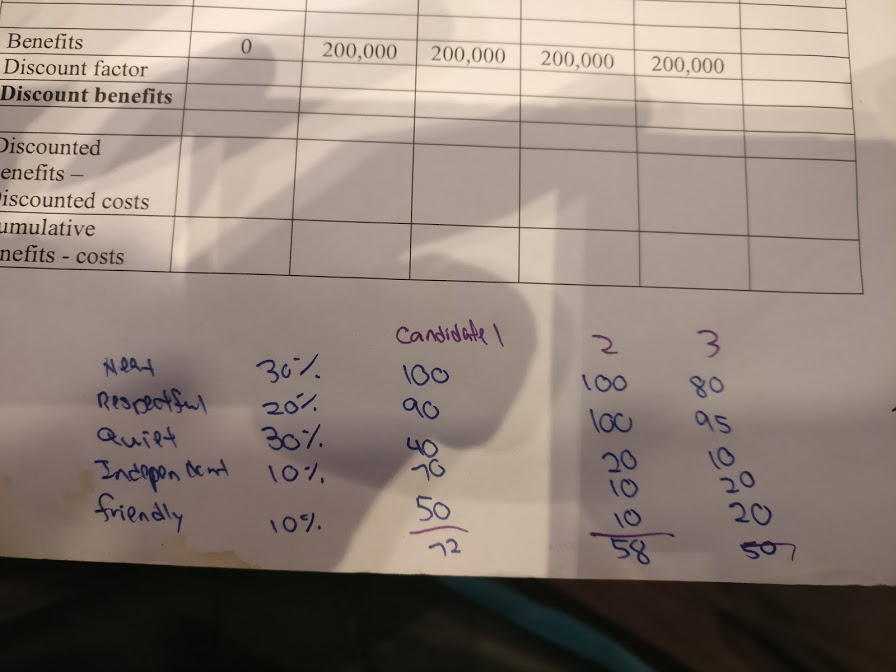 Benefits 0 200,000 200,000 200,000 200,000
Discount factor
Discount benefits
Discounted
enefits –
iscounted costs
umulative
nefits - costs
Candidate 1 2 3
Neat 30% 100 100 80
Respectful 20% 90 100 95
Quiet 30% 40 20 10
Independent 10% 70 10 20
friendly 10% 50 10 20
72 58 50